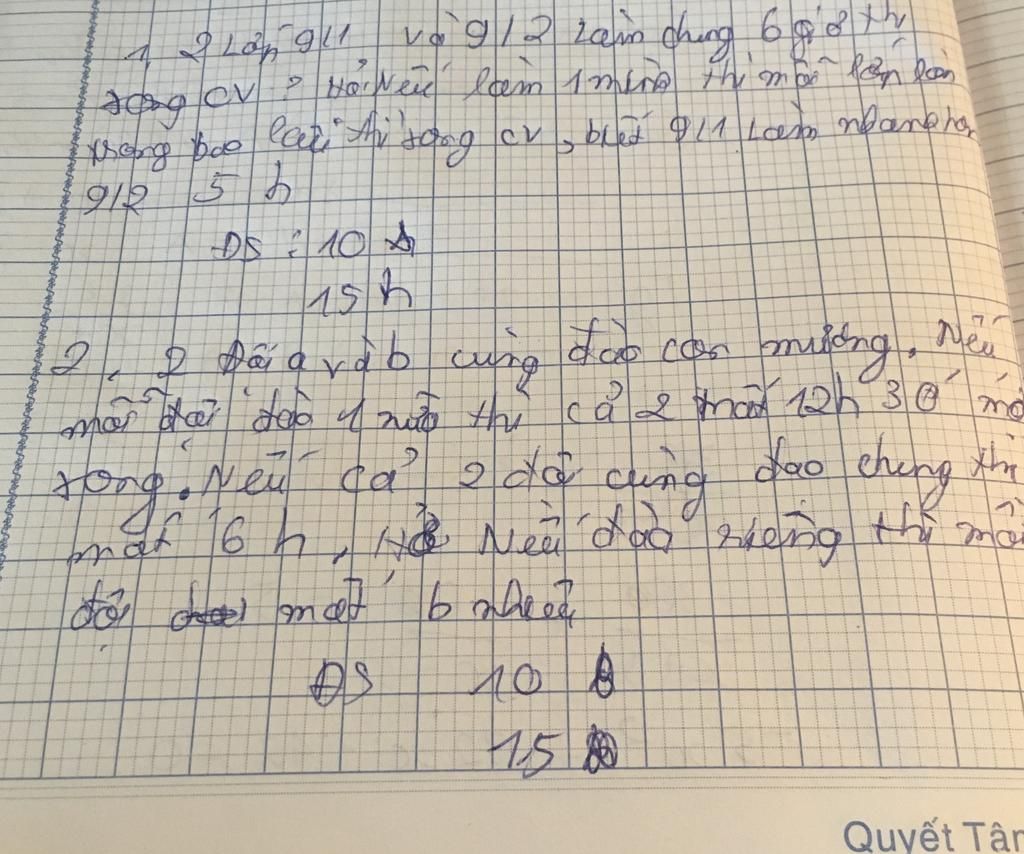 1, 2 Lớp 9/1 và 9/2 Làm chung 6 giờ thì
xong CV? Hỏi Nếu làm 1 mình thì mỗi lớp làm
trong bao lâu thì xong CV, biết 9/1 Làm nhanh hơn
9/2 5 h
ĐS : 10 h
15 h
2. 2 Đội a và b cùng đào con mương. Nếu
mỗi đội đào 1 nửa thì cả 2 mất 12h 30' mới
xong. Nếu cả 2 đội cùng đào chung thì
mất 6 h, Hỏi Nếu đào riêng thì mỗi
đội mất b nhiêu
ĐS 10
15
Quyết Tâm